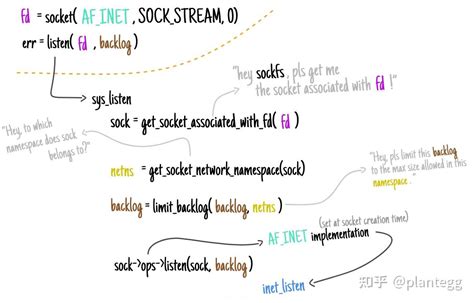 fd = socket( AF_INET , SOCK_STREAM, 0)
err = listen( fd , backlog)
"hey sockfs, pls get me
the socket associated with fd !"
sys_listen
sock = get_socket_associated_with_fd( fd )
"Hey, to which
namespace does sock
belongs to?"
netns = get_socket_network_namespace(sock)
"Hey, pls limit this backlog
to the max size allowed in this
namespace."
backlog = limit_backlog( backlog, netns )
(set at socket creation time)
AF_INET implementation
sock->ops->listen(sock, backlog)
inet_listen
知乎 @plantegg